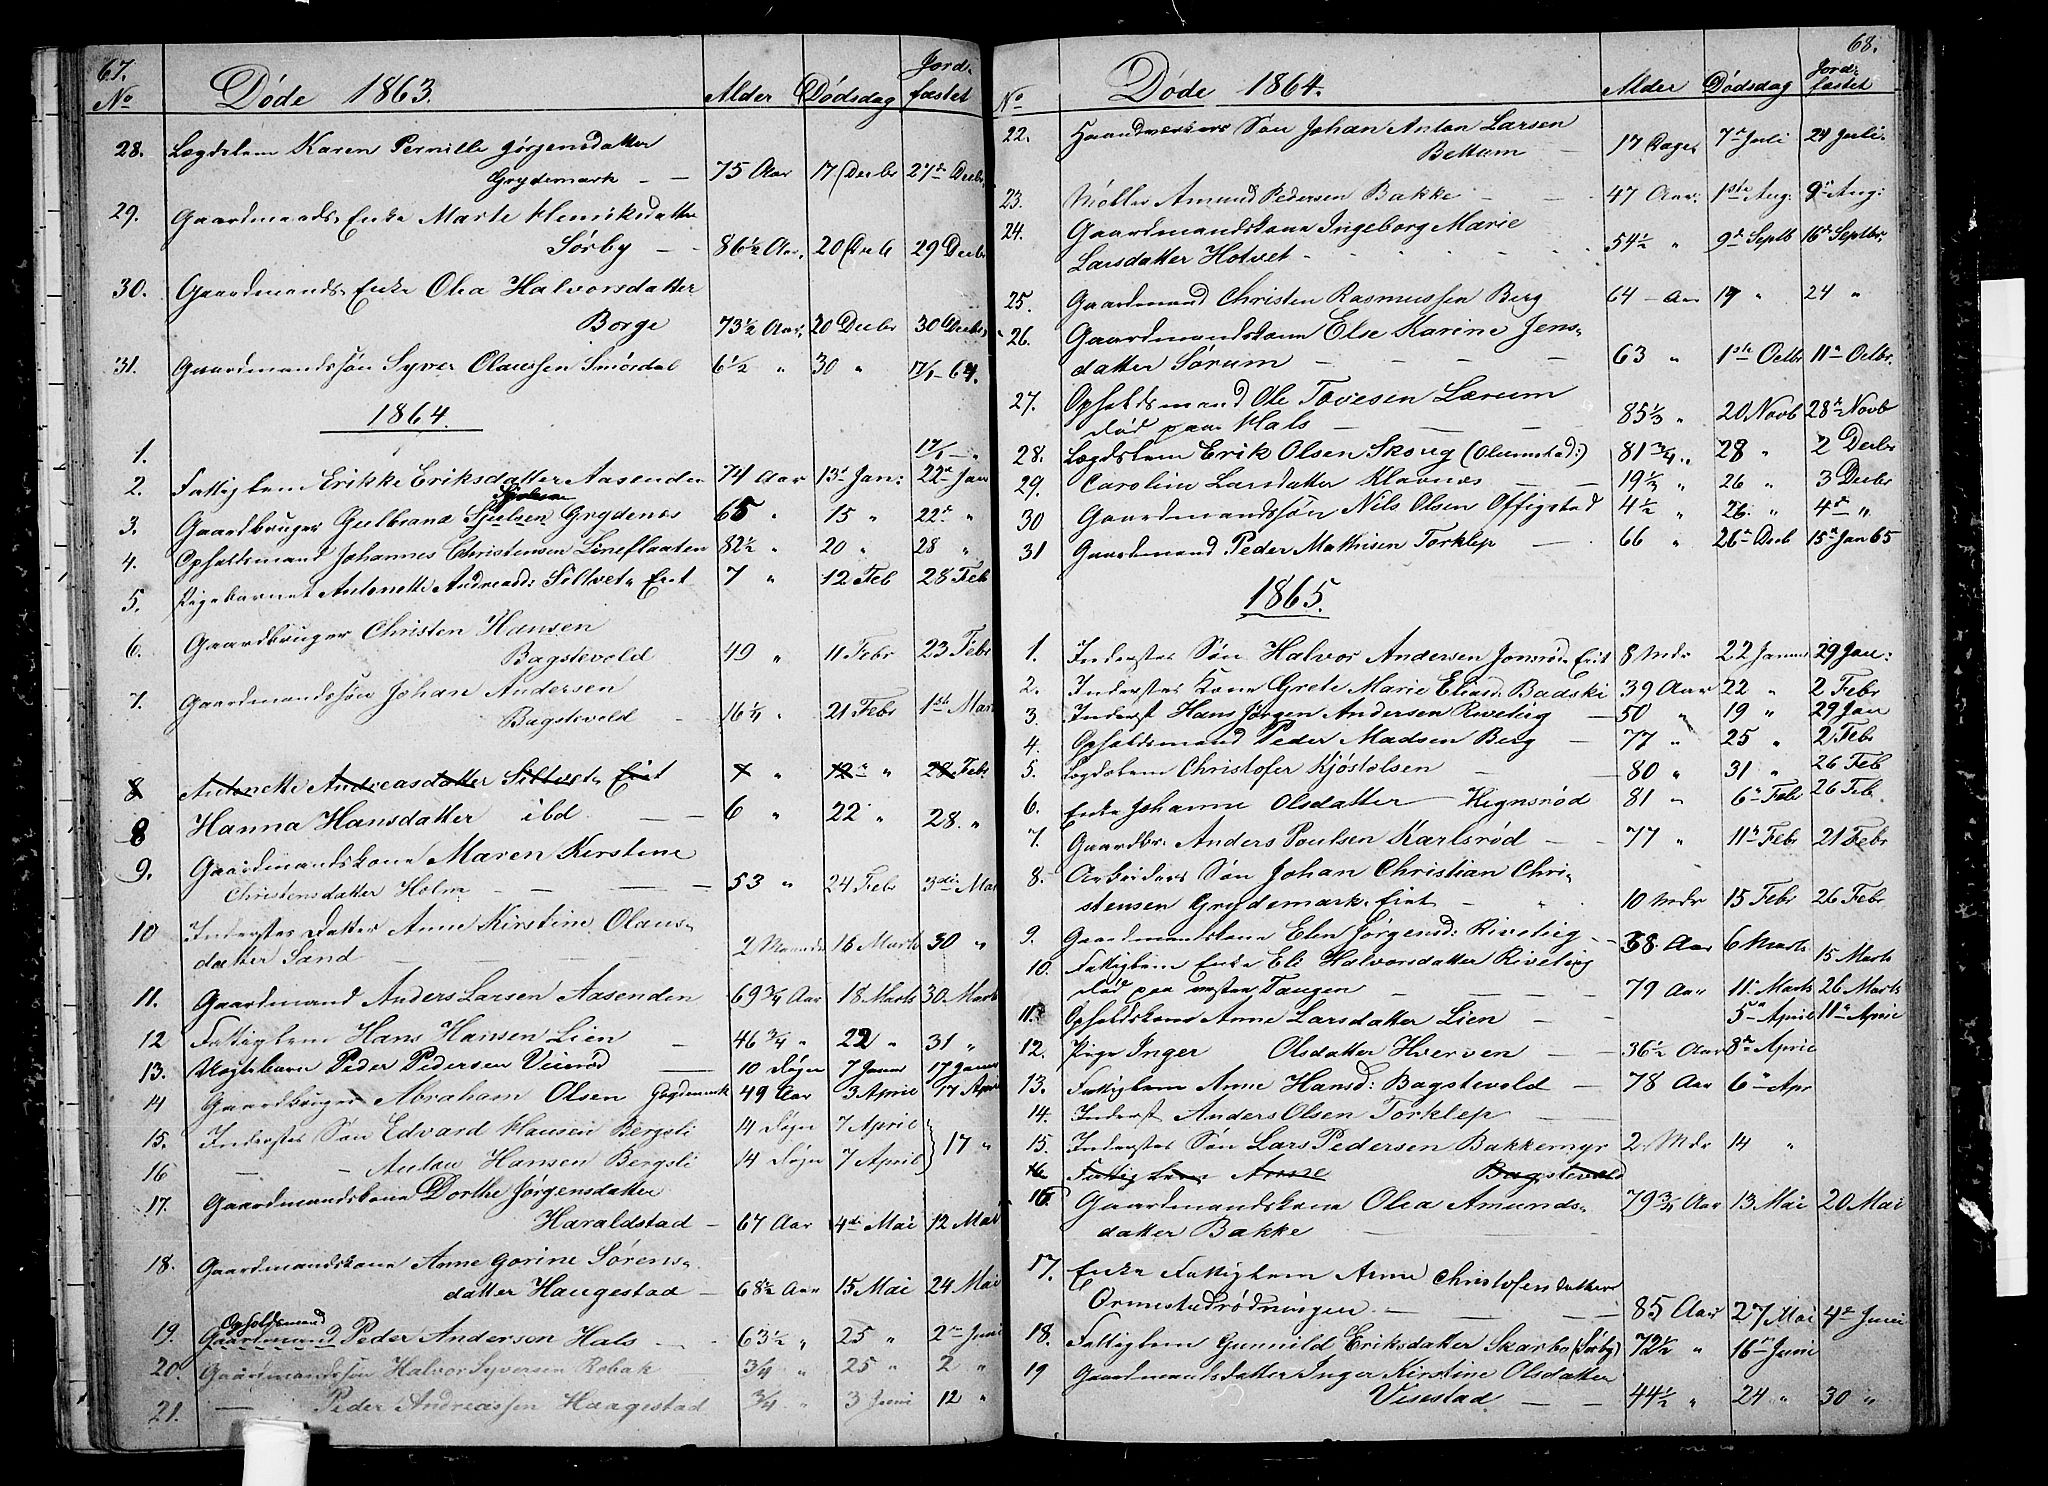 67.
No Døde 1863. Alder Dødsdag Jord-
fæstet
28. Lægdslem Karen Pernille Jørgensdatter
Grydemark — — 75 Aar 17 Decbr 27de Decbr.
29. Gaardmands Enke Marte Henriksdatter
Sørby — — 86½ Aar. 20 Decb 29 Decbr
30. Gaardmands Enke Olea Halvorsdatter
Borge 73½ Aar. 20 Decbr 30 Decbr.
31. Gaardmandssøn Syver Olaussen Smørdal 6½ " 30 " 17/1-64.
1864.
1. 17/1 — "
2. Fattiglem Erikke Eriksdatter Aasenden 74 Aar 13de Jan: 22de Jan
3. Gaardbruger Gulbrand Grydenes 65 " 15 " 22de "
4. Opholdsmand Johannes Christensen Lineflaaten 82½ " 20 " 28 "
5. Pigebarnet Antonette Andreasd: Siltvet Eiet 7 " 12 Feb 28 Feb
6. Gaardbruger Christen Hansen
Bagstevold 49 " 11 Febr 23 Febr
7. Gaardmandssøn Johan Andersen
Bagstevold — 16¼ " 21 Febr 1ste Mar
8 Antonette Andreasdatter Siltvet Eiet 7 " 12te " 28 Feb
8 Hanna Hansdatter ibd. — — 6 " 22 " 28. "
9. Gaardmandskone Maren Kirstine
Christensdatter Holm — — — 53 " 24 Febr 3die Mar
10 Inderstes Datter Anne Kirstine Olaus-
datter Sand — — — 2 Maaneder 16 Marts 30 "
11. Gaardmand Anders Larsen Aasenden 69¾ Aar 18 Marts 30. Marts
12 Fattiglem Hans Hansen Lien — 46¾ " 22 " 31 "
13. Ungtebarn Peder Pedersen Veierød — 10 Døgn 7 Januar 17 Januar
14 Gaardbruger Abraham Olsen Grydemark 49 Aar 3 April 17 April
15. Inderstes Søn Edvard Hansen Bergsli 14 Døgn 7 April
16 — - Anton Hansen Bergsli 14 Døgn 7 April } 17 "
17. Gaardmandskone Dorthe Jørgensdatter
Haraldstad — 67 Aar 4de Mai 12 Mai
18. Gaardmandskone Anne Gorine Sørens-
datter Haugestad — 68½ Aar 15 Mai 24 Mai
Opholdsmand
19. Gaardmand Peder Andersen Hals — 63½ " 25 " 2den Juni
20. Gaardmandssøn Halvor Syversen Robak ¾ " 25 " 2 "
21. — Peder Andreassen Haagestad ¾ " 3 Juni 12 "
68.
No Døde 1864. Alder Dødsdag Jord-
fæstet
22. Haandverkers Søn Johan Anton Larsen
Bettum — 17 Dage 7de Juli 24 Juli.
23. Møller Amund Pedersen Bakke — - 47 Aar. 1ste Aug: 9de Aug:
24. Gaardmandskone Ingeborg Marie
Larsdatter Hotvet - 54½ " 9de Septb 16de Septbr.
25. Gaardmand Christen Rasmussen Berg 64 — Aar 19 " 24 "
26. Gaardmandskone Else Karine Jens-
datter Sørum — — — 63 " 1ste Octbr 11te Octbr.
27. Opholdsmand Ole Tovesen Lærum
død paa Hals — — — 85⅓ " 20 Novb 28de Novb
28. Lægdslem Erik Olsen Skoug (Olumstad:) 81¾ " 28 " 2 Decbr
29. Caroline Larsdatter Klavnæs — — 19½ " 26 " 3 Decbr
30 Gaardmandssøn Nils Olsen Offigstad 4½ " 26. " 4de "
31 Gaardmand Peder Mathisen Torklep — 66 " 26de Decb 15de Jan 65
1865.
1. Inderstes Søn Halvor Andersen Jonsrød Eiet 8 Mdr 22 Januar 29 Jan:
2. Inderstes Kone Grete Marie Eliasd: Badski 39 Aar 22 " 2 Febr
3. Inderst Hans Jørgen Andersen Riveteig — 50 " 19 " 29 Jan
4. Opholdsmand Peder Madsen Berg — 77 " 25 " 2 Febr
5. Lægdslem Christofer Kjøstolsen — 80 " 31 " 26 Feb
6. Enke Johanne Olsdatter — Hegnsrød 81 " 6te Febr 26 Feb.
7. Gaardbr: Anders Poulsen Karlsrød — 77 " 11te Febr 21 Febr
8. Arbeiders Søn Johan Christian Chri-
stensen Grydemark-eiet — " 10 Mdr 15 Febr 26 Febr
9. Gaardmandskone Elen Jørgensd: Riveteig — 38 Aar 6 Marts 15 Marts
10. Fattiglem Enke Eli Halvorsdatter Riveteig
død paa Tangen — — — 79 Aar 11te Marts 26 Marts
11. Opholdskone Anne Larsdatter Lien — — 5te April 11te April
12. Pige Inger Olsdatter Hverven — 36½ Aar 8de April
13. Fattiglem Anne Hansd: Bagstevold — 78 Aar 6te Apr
14. Inderst Anders Olsen Torklep —
15. Inderstes Søn Lars Pedersen Bakkemyr 2. Mdr 14 "
16 Fattiglem Anne Bagstevold
16 Gaardmandskone Olea Amunds-
datter Bakke — — 79¾ Aar 13 Mai 20 Mai
17. Enke Fattiglem Anne Christofersdatter
Ormestadrødningen — — — 85 Aar 27 Mai 4de Juni
18. Fattiglem Gunnild Eriksdatter Skarbo (Sørby) 72½ " 16de Juni
19 Gaardmandsdatter Inger Kirstine Olsdatter
Vivestad — — 44½ " 24 " 30 "